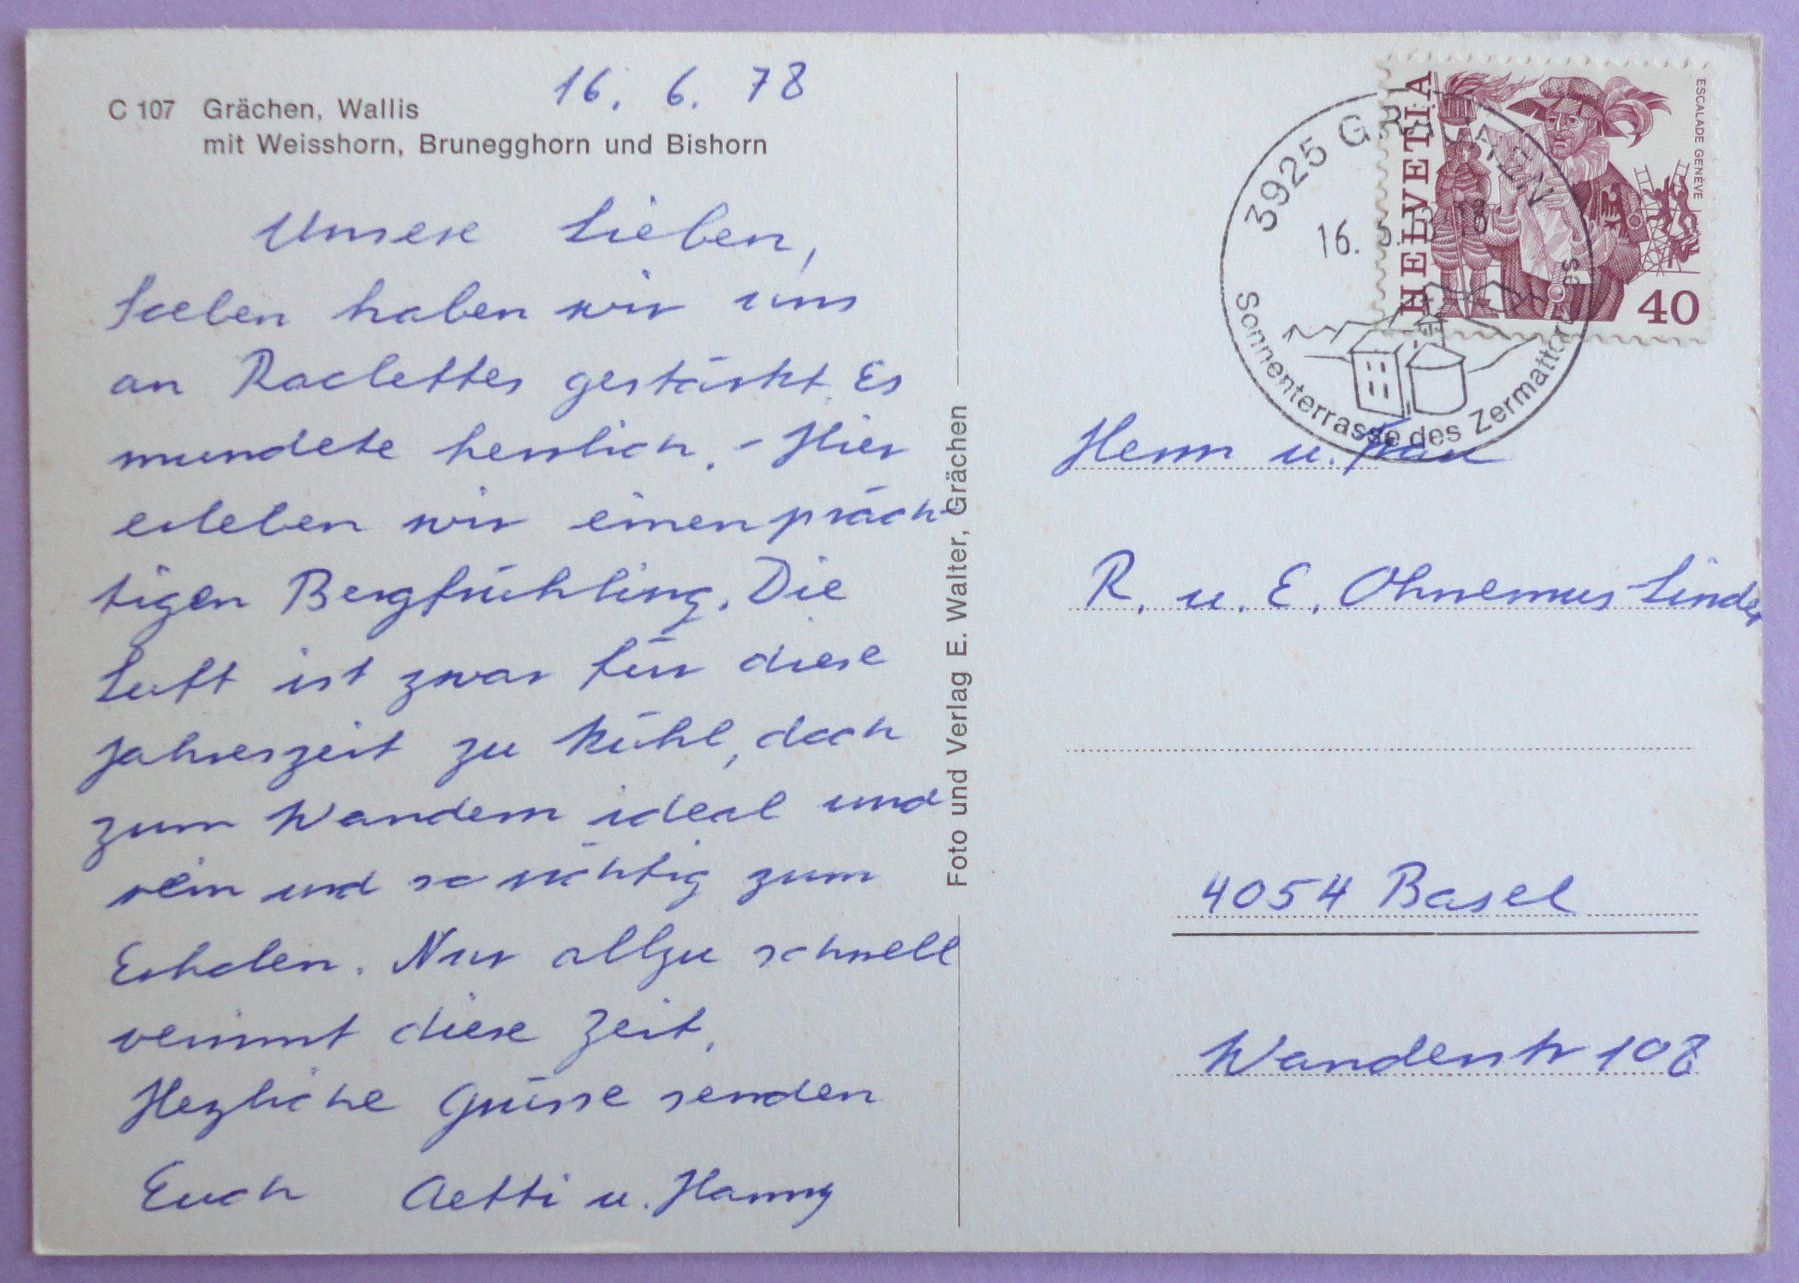 16. 6. 78
C 107 Grächen, Wallis
mit Weisshorn, Brunegghorn und Bishorn
Unsere Lieben,
Soeben haben wir uns
an Raclettes gestärkt. Es
mundete herrlich. - Hier
erleben wir einen präch-
tigen Bergfrühling. Die
Luft ist zwar für diese
Jahreszeit zu kühl, doch
zum Wandern ideal und
rein und so richtig zum
Erholen. Nur allzu schnell
verinnt diese Zeit.
Hezliche Grüsse senden
Euch Aetti u. Hanny
Foto und Verlag E. Walter, Grächen
HELVETIA
ESCALADE GENÈVE
40
3925 GRÄCHEN
16.
18
Sonnenterrasse des Zermattertales
Herrn u. Frau
R. u. E. Ohnemus Linder
4054 Basel
Wanderstr 108